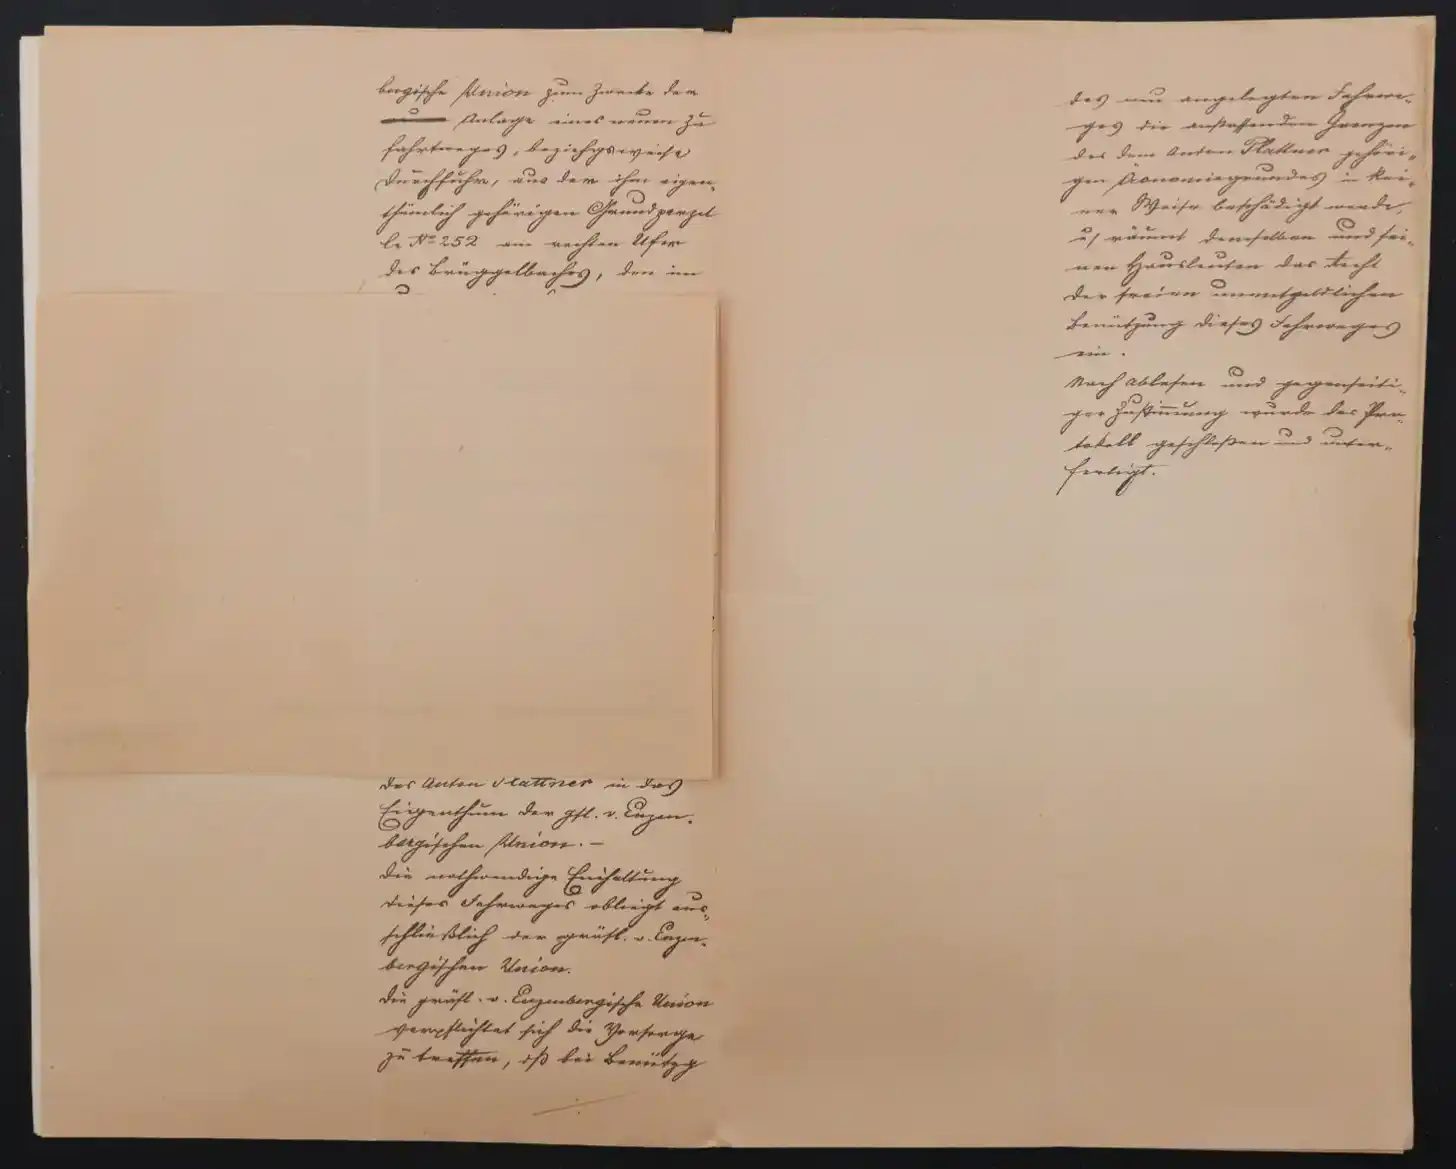 bergische Union zum Zwecke der
Anlage eines neuen Zu
fahrtweges, beziehgsweise
Durchfuhr, aus der ihm eigen„
thümlich gehörigen Grundparzel
le No 252 am rechten Ufer
des Brüggelbaches, den im
des Anton Plattner in das
Eigenthum der gfl. v. Enzen„
bergischen Union. –
Die nothwendige Einhaltung
dieses Fahrweges obliegt aus„
schließlich der gräfl. v. Enzen„
bergischen Union.
Die gräfl. v. Enzenbergische Union
verpflichtet sich die Vorsorge
zu treffen, dß bei Benützg
des neu angelegten Fahrwe„
ges die anstossenden Grenzen
des dem Anton Plattner gehöri„
gen Äconomiegrundes in kei„
ner Weise beschädigt werde,
u räumt demselben und sei„
nen Hausleuten das Recht
der freien unentgeldlichen
Benützung dieses Fahrweges
ein.
Nach Ablesen und gegenseiti„
ger Zustimmung wurde das Pro„
tokoll geschloßen und unter„
fertigt.